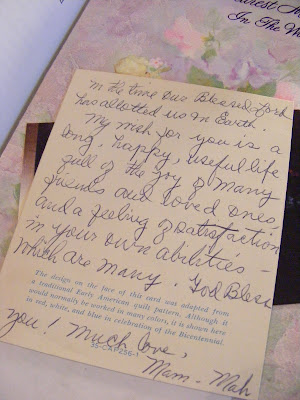 In The Wo
In the time our Blessed Lord
has allotted us on Earth.
My wish for you is a
long, happy, useful life
full of the joy of many
friends and loved ones
and a feeling of satisfaction
in your own abilities -
which are many. God Bless
The design on the face of this card was adapted from
a traditional Early American quilt pattern. Although it
would normally be worked in many colors, it is shown here
in red, white, and blue in celebration of the Bicentennial.
you! Much love,
35-CXP256-1
Mam-Mah